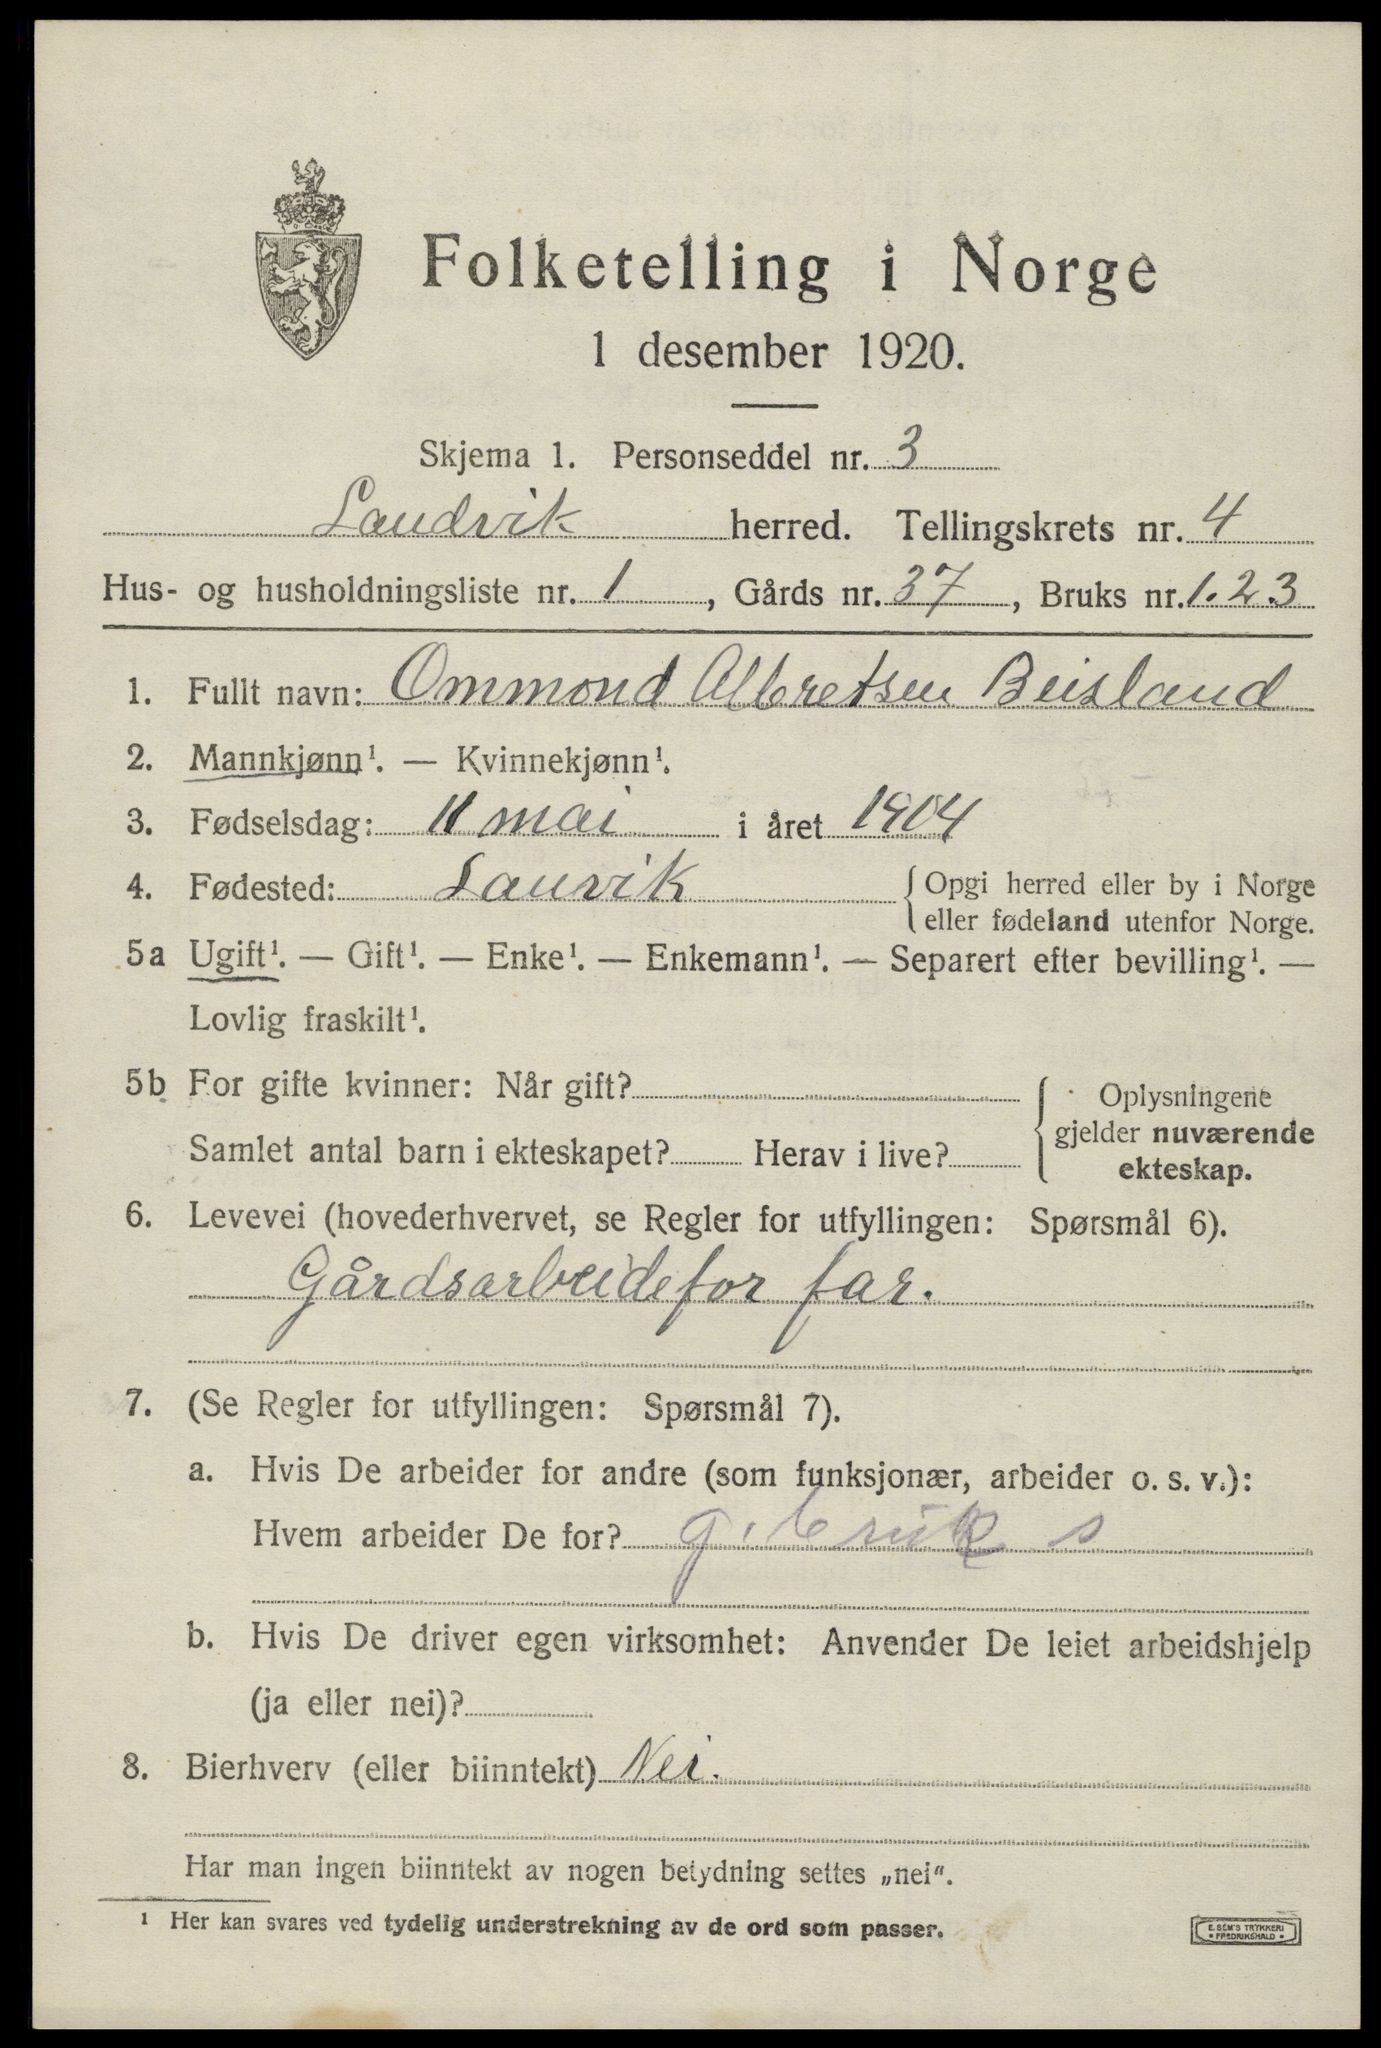 Folketelling i Norge
1 desember 1920.
Skjema 1. Personseddel nr. 3
Landvik herred. Tellingskrets nr. 4
Hus- og husholdningsliste nr. 1, Gårds nr. 37, Bruks nr. 1.2 3
1. Fullt navn: Ommond Albretsen Beisland
2. Mannkjønn¹. — Kvinnekjønn¹.
3. Fødselsdag: 11 mai i året 1904
4. Fødested: Lanvik { Opgi herred eller by i Norge
eller fødeland utenfor Norge.
5a Ugift¹. — Gift¹. — Enke¹. — Enkemann¹. — Separert efter bevilling¹. —
Lovlig fraskilt¹.
5b For gifte kvinner: Når gift? { Oplysningene
gjelder nuværende
Samlet antal barn i ekteskapet? Herav i live?
ekteskap.
6. Levevei (hovederhvervet, se Regler for utfyllingen: Spørsmål 6).
Gårdsarbeide for far.
7. (Se Regler for utfyllingen: Spørsmål 7).
a. Hvis De arbeider for andre (som funksjonær, arbeider o. s. v.):
Hvem arbeider De for? s
b. Hvis De driver egen virksomhet: Anvender De leiet arbeidshjelp
(ja eller nei)?
8. Bierhverv (eller biinntekt) Nei.
Har man ingen biinntekt av nogen betydning settes „nei“.
¹ Her kan svares ved tydelig understrekning av de ord som passer.
E. SEM'S TRYKKERI
• FREDRIKSHALD •